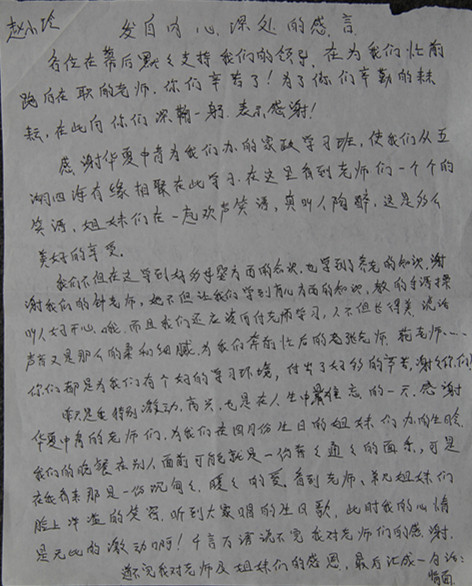 赵小玲
发自内心深处的感言
各位在幕后默々支持我们的领导,在为我们忙前
跑后在职的老师,你们辛苦了!为了你们辛勤的耕
耘,在此向你们深鞠一躬.表示感谢!
感谢华夏中青为我们办的家政学习班,使我们从五
湖四海有缘相聚在此学习.在这里看到老师们一个个的
笑语,姐妹们在一起欢声笑语,真叫人陶醉,这是多么
美好的享受.
我们不但在这学到好多母婴方面的知识,也学到了养老的知识,谢
谢我们的钟老师,她不但让我们学到育儿方面的知识,教的手语操
叫人好开心哦,而且我们还应该向付老师学习,人不但长得美,说话
声音又是那么的柔和细腻.为我们奔前忙后的老张老师,苑老师…
你们都是为我们有个好的学习环境,付出了好多的辛苦,谢谢你们!
昨天是我特别激动,高兴,也是在人生中最难忘的一天.感谢
华夏中青的老师们,为我们在四月份生日的姐妹们办的生日.
我们的晚餐在别人面前可能就是一份普々通々的面条,可是
在我看来那是一份沉甸々,暖々的爱.看到老师、单元姐妹们
脸上洋溢的笑容,听到大家唱的生日歌,此时我的心情
是无比的激动啊!千言万语说不完我对老师们的感谢.
道不完我对老师及姐妹们的感恩,最后汇成一句话: